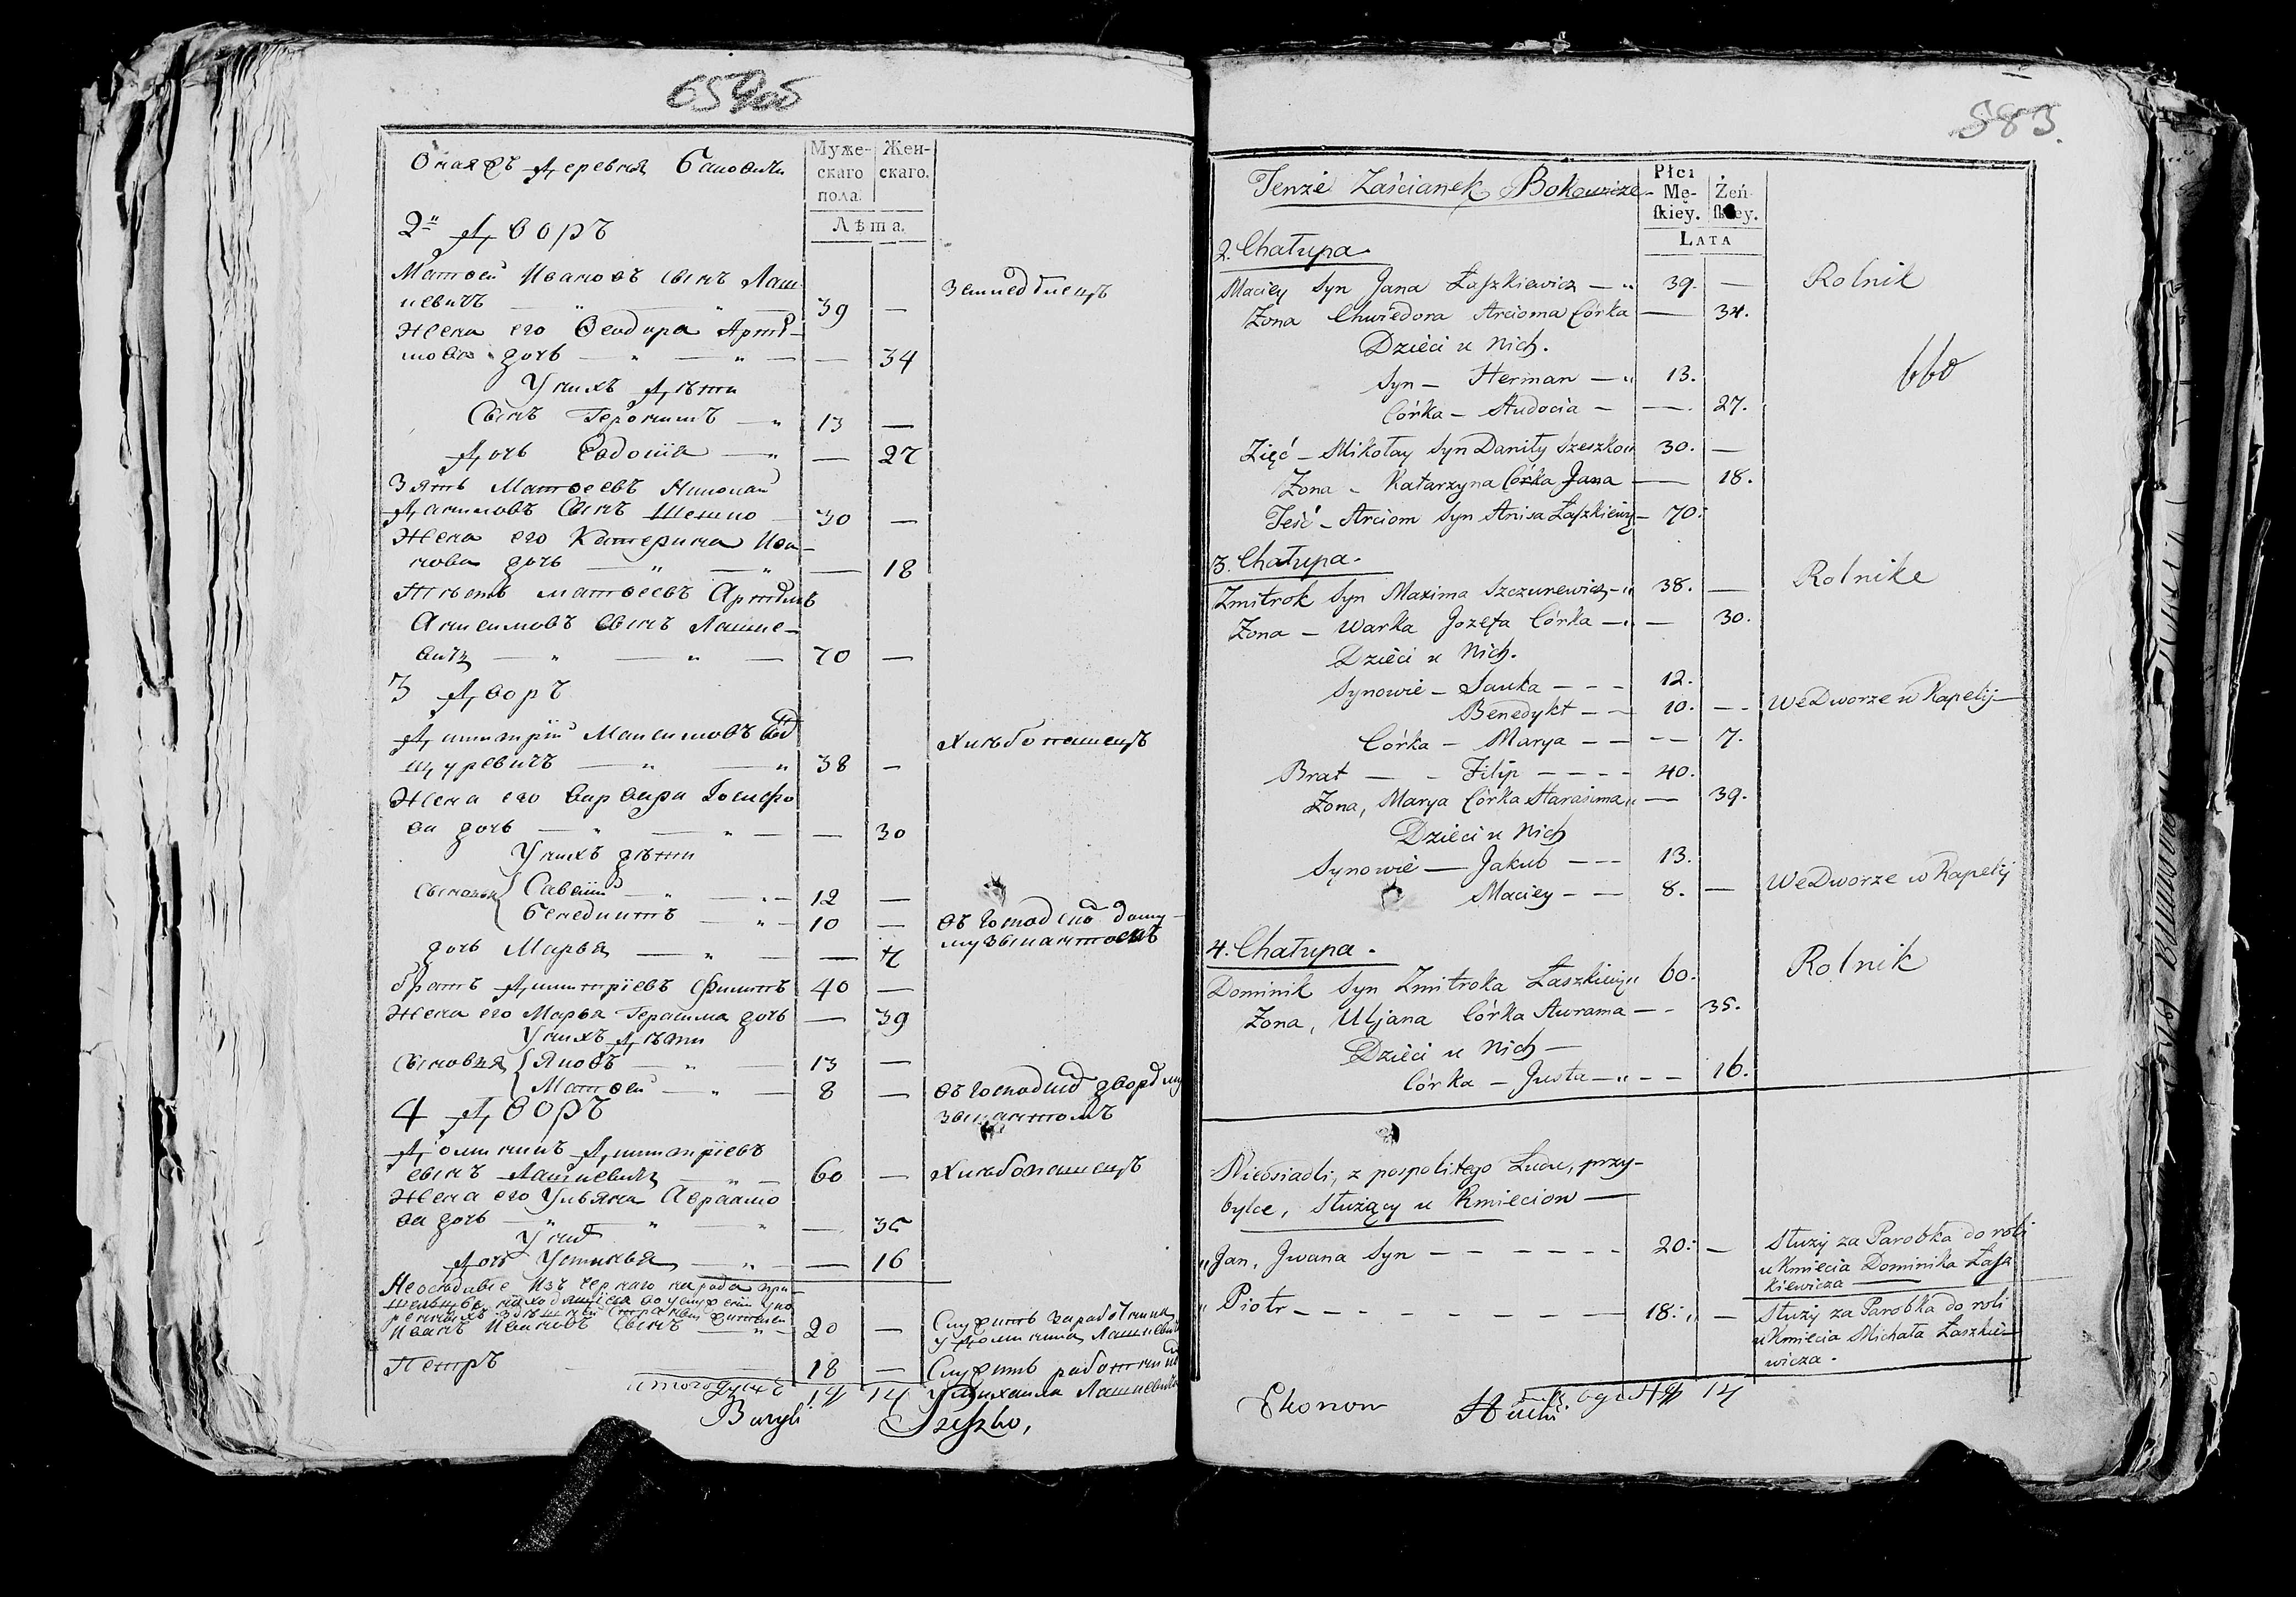 Муже-
скаго
пола.
Жен-
скаго.
Лѣта.
2й Дворъ
Матвей Ивановъ сынъ Лаш-
кевичъ — „ — „ — 39 —
Земледѣлецъ
Жена его Ѳеодора Артѣ-
мова дочь — „ — „ — — 34
У нихъ Дѣти
Сынъ Геронимъ — „ 13 —
Дочь Евдокія — „ — 27
Зять Матвеевъ Николай
Даниловъ Сынъ Шешко 30 —
Жена его Катерина Ива-
нова дочь — „ — „ — 18
Тесть Матвеевъ Артемъ
Анисимовъ Сынъ Лашке-
вичъ — „ — „ — 70 —
3 Дворъ
Дмитрій Максимовъ
щуревичъ — „ — „ 38 —
Хлѣбопашецъ
Жена его Варвара Іосифо
ва дочь — „ — „ — — 30
У нихъ дѣти
Сыновья Савелій — „ — „ — 12 —
Бенедиктъ — „ — 10 —
дочь Марья — „ — — 7
братъ Дмитріевъ Филипъ 40 —
Жена его Марья Герасима дочь — 39
У нихъ Дѣти
Сыновья Яковъ — „ — 13 —
Матвей — „ — 8 —
4 Дворъ
Доминикъ Дмитріевъ
сынъ Лашкевичъ — „ — 60 —
Хлѣбопашецъ
Жена его Ульяна Авраамо
ва дочь — „ — „ — „ — 35
У нихъ
Дочь Устинья — „ — — 16
Иванъ Ивановъ Сынъ — „ — 20 —
Петръ 18 —
Служитъ работникомъ
У Михаила Лашкевича
14
Szeszko,
883.
Tenże Zaścianek Bokowicze
Płci
Mę-
skiey.
Żeń-
skiey.
LATA
2. Chałupa
Maciey Syn Jana Łaszkiewicz — „ 39. — Rolnik
Żona Chwiedora Arcioma Córka — 34.
Dzieci u Nich.
Syn — Herman — „ 13.
Córka — Audocia — —. 27.
Zięć — Mikołay Syn Daniły Szeszko 30. —
Żona — Katarzyna Córka Jana — 18.
Teść — Arciom Syn Anisa Łaszkiewicz — 70.
3. Chałupa.
Zmitrok Syn Maxima Szczurewicz — „ 38. — Rolnike
Żona — Warka Jozefa Córka — „ — 30.
Dzieci u Nich.
Synowie — Sauka — — — 12.
Benedykt — — 10. — — We Dworze w Kapelij —
Córka — Marya — — — — 7.
Brat — — Filip — — — — 40.
Żona, Marya Córka Harasima „ — 39.
Dzieci u Nich
Synowie — Jakub — — — 13.
Maciey — — 8. — We Dworze w Kapelij
4. Chałupa.
Dominik Syn Zmitroka Łaszkiewicz 60. Rolnik
Żona, Uljana Córka Awrama — — 35.
Dzieci u Nich —
Córka — Justa — „ — — 16.
Nieosiadli, z pospolitego Ludu, przy-
bylce, służący u Kmieciow —
„ Jan, Jwana Syn — — — — — — 20. —
Służy za Parobka do roli
u Kmiecia Dominika Łasz
kiewicza —
„ Piotr — — — — — — — 18. „ —
Służy za Parobka do roli
u Kmiecia Michała Łaszkie-
wicza.
Ekonom
14